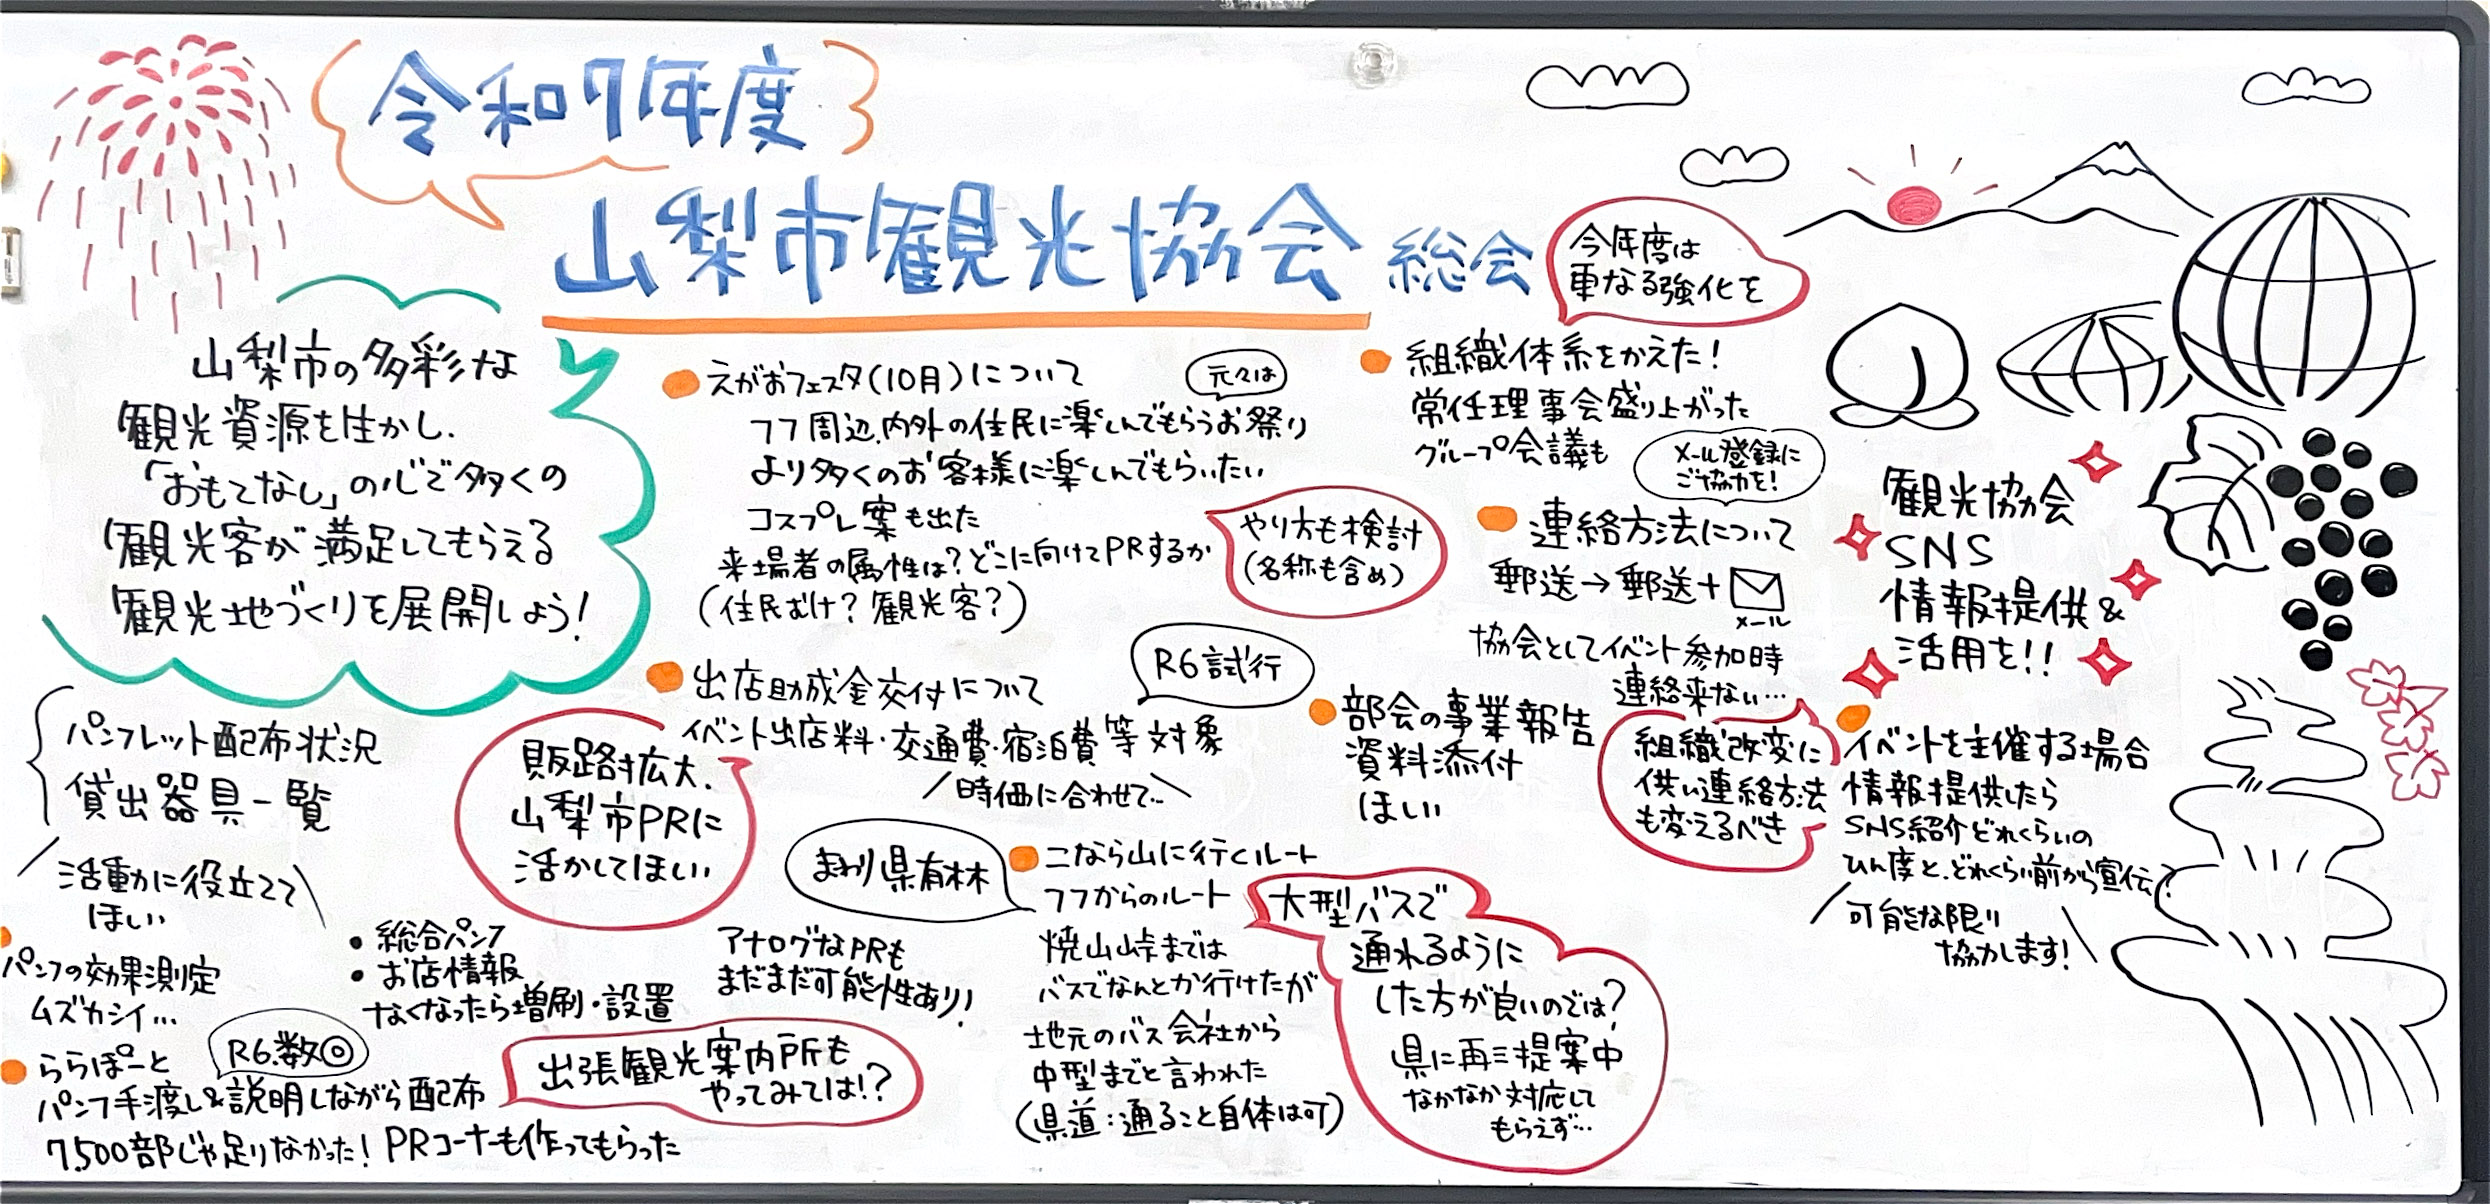 令和7年度
山梨市観光協会 総会
今年度は
更なる強化を
山梨市の多彩な
観光資源を生かし、
「おもてなし」の心で多くの
観光客が満足してもらえる
観光地づくりを展開しよう!
パンフレット配布状況
貸出器具一覧
活動に役立てて
ほしい
パンフの効果測定
ムズカシイ…
・総合パンフ
・お店情報
なくなったら増刷・設置
ららぽーと
R6.数◎
パンフ手渡し&説明しながら配布
7,500部じゃ足りなかった! PRコーナーも作ってもらった
えがおフェスタ(10月)について
元々は
フフ周辺、内外の住民に楽しんでもらうお祭り
より多くのお客様に楽しんでもらいたい
コスプレ案も出た
来場者の属性は?どこに向けてPRするか
(住民むけ? 観光客?)
やり方も検討
(名称も含め)
出店助成金交付について
R6試行
イベント出店料・交通費・宿泊費等対象
時価に合わせて…
販路拡大、
山梨市PRに
活かしてほしい
アナログなPRも
まだまだ可能性あり!
出張観光案内所も
やってみては!?
こなら山に行くルート
まわり県有林
フフからのルート
焼山峠までは
バスでなんとか行けたが
地元のバス会社から
中型までと言われた
(県道:通ること自体は可)
大型バスで
通れるように
した方が良いのでは?
県に再三提案中
なかなか対応して
もらえず…
組織体系をかえた!
常任理事会盛り上がった
グループ会議も
メール登録に
ご協力を!
連絡方法について
郵送→郵送+
メール
協会としてイベント参加時
連絡来ない…
組織改変に
供い連絡方法
も変えるべき
部会の事業報告
資料添付
ほしい
観光協会
SNS
情報提供&
活用を!!
イベントを主催する場合
情報提供したら
SNS紹介どれくらいの
ひん度と、どれくらい前から宣伝?
可能な限り
協力します!